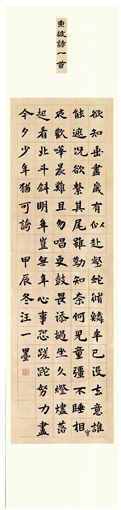 東坡詩一首
欲知垂盡歲有似赴壑蛇脩鱗半已沒去意誰
能遮況欲繫其尾雖勤知奈何兒童彊不睡相守
夜歡譁晨雞且勿唱更鼓畏添撾坐久燈燼落
起看北斗斜明年豈無年心事恐蹉跎努力盡
今夕少年猶可誇 甲辰冬汪一墨